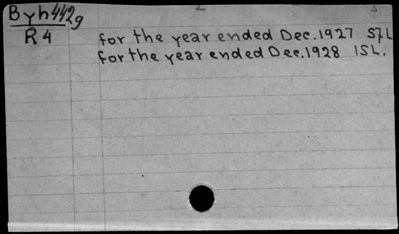 Byh442g
R4
for the year ended Dec. 1927
for the year ended Dec. 1928 ISL.